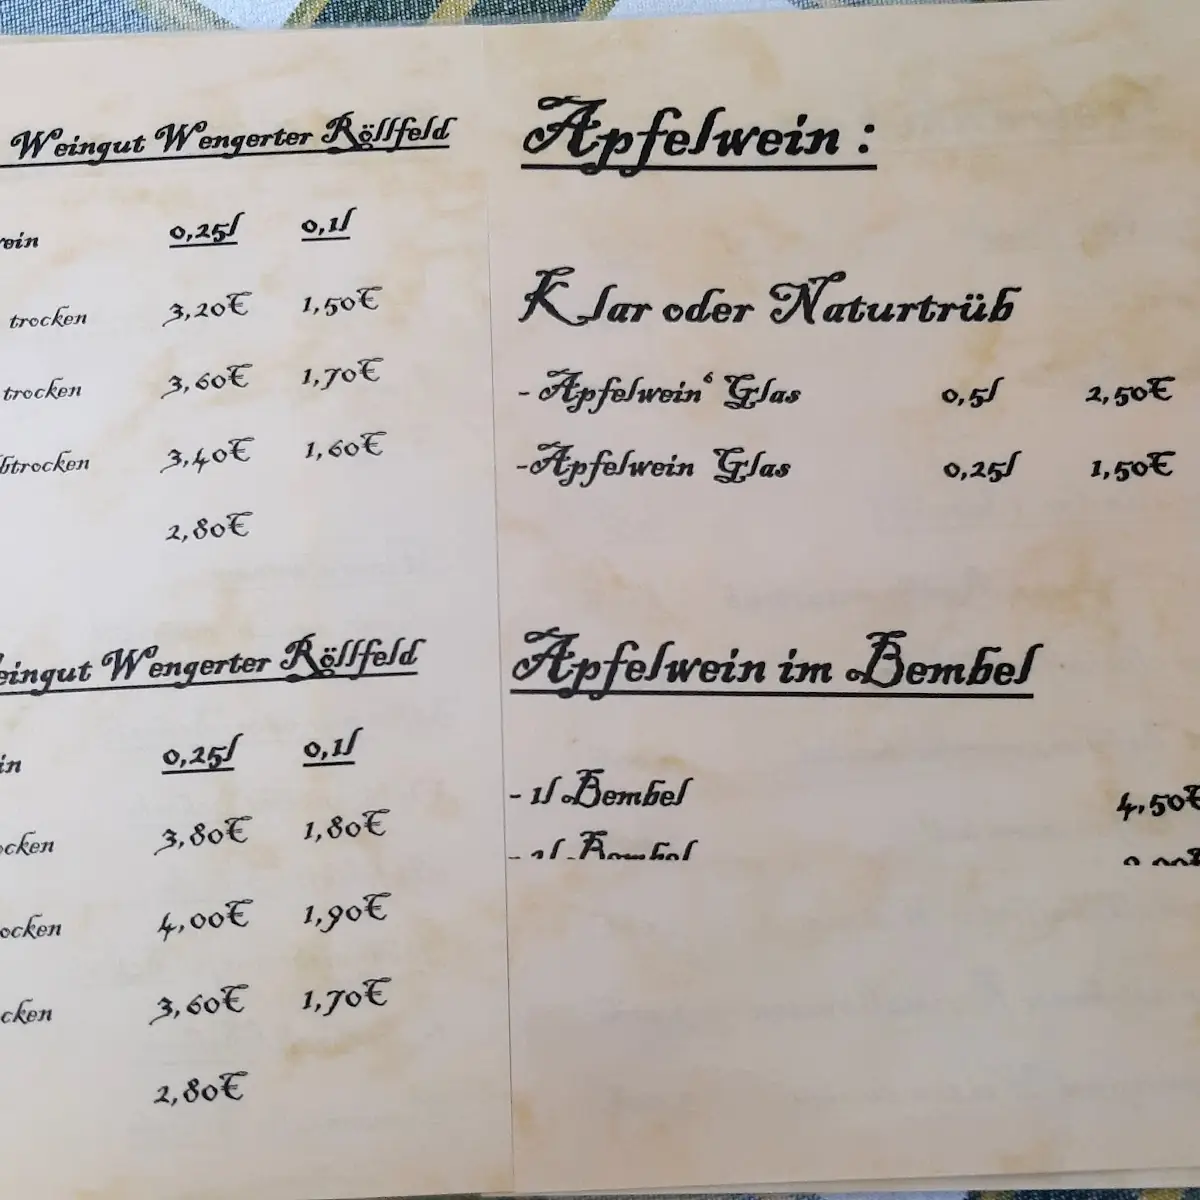 Weingut Wengerter Röllfeld
0,25l 0,1l
trocken 3,20€ 1,50€
trocken 3,60€ 1,70€
3,40€ 1,60€
2,80€
Wengerter Röllfeld
0,25l 0,1l
3,80€ 1,80€
4,00€ 1,90€
3,60€ 1,70€
2,80€
Apfelwein :
Klar oder Naturtrüb
- Apfelwein‘ Glas 0,5l 2,50€
-Apfelwein Glas 0,25l 1,50€
Apfelwein im Bembel
- 1l Bembel 4,50€